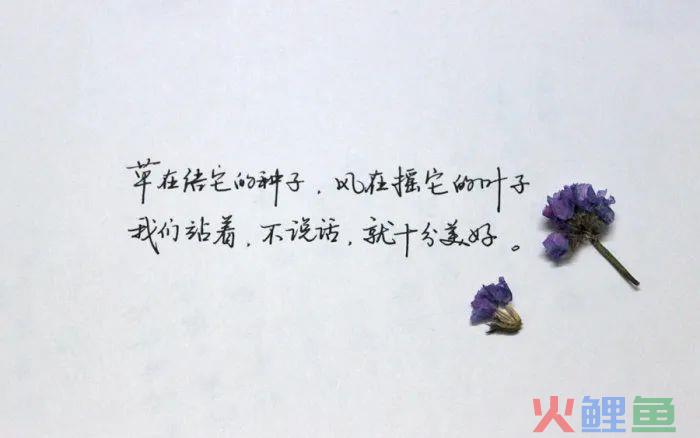 草在结它的种子，风在摇它的叶子
我们站着，不说话，就十分美好。
火鲤鱼